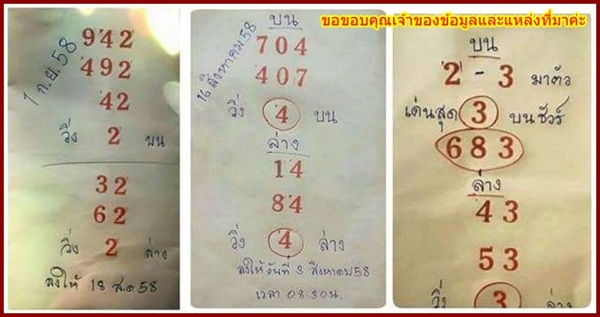 ขอขอบคุณเจ้าของข้อมูลและแหล่งที่มาค่ะ
1 ก.ย. 58
942
492
42
วิ่ง 2 บน
32
62
วิ่ง 2 ล่าง
ลงให้ 18 ส.ค 58
16 สิงหาคม 58
บน
704
407
วิ่ง 4 บน
ล่าง
14
84
วิ่ง 4 ล่าง
ลงให้วันที่ 3 สิงหาคม 58
เวลา 08.30 น.
บน
2 - 3 มาตัว
เด่นสุด 3 บนชัวร์
683
ล่าง
43
53
วิ่ง 3 ล่าง